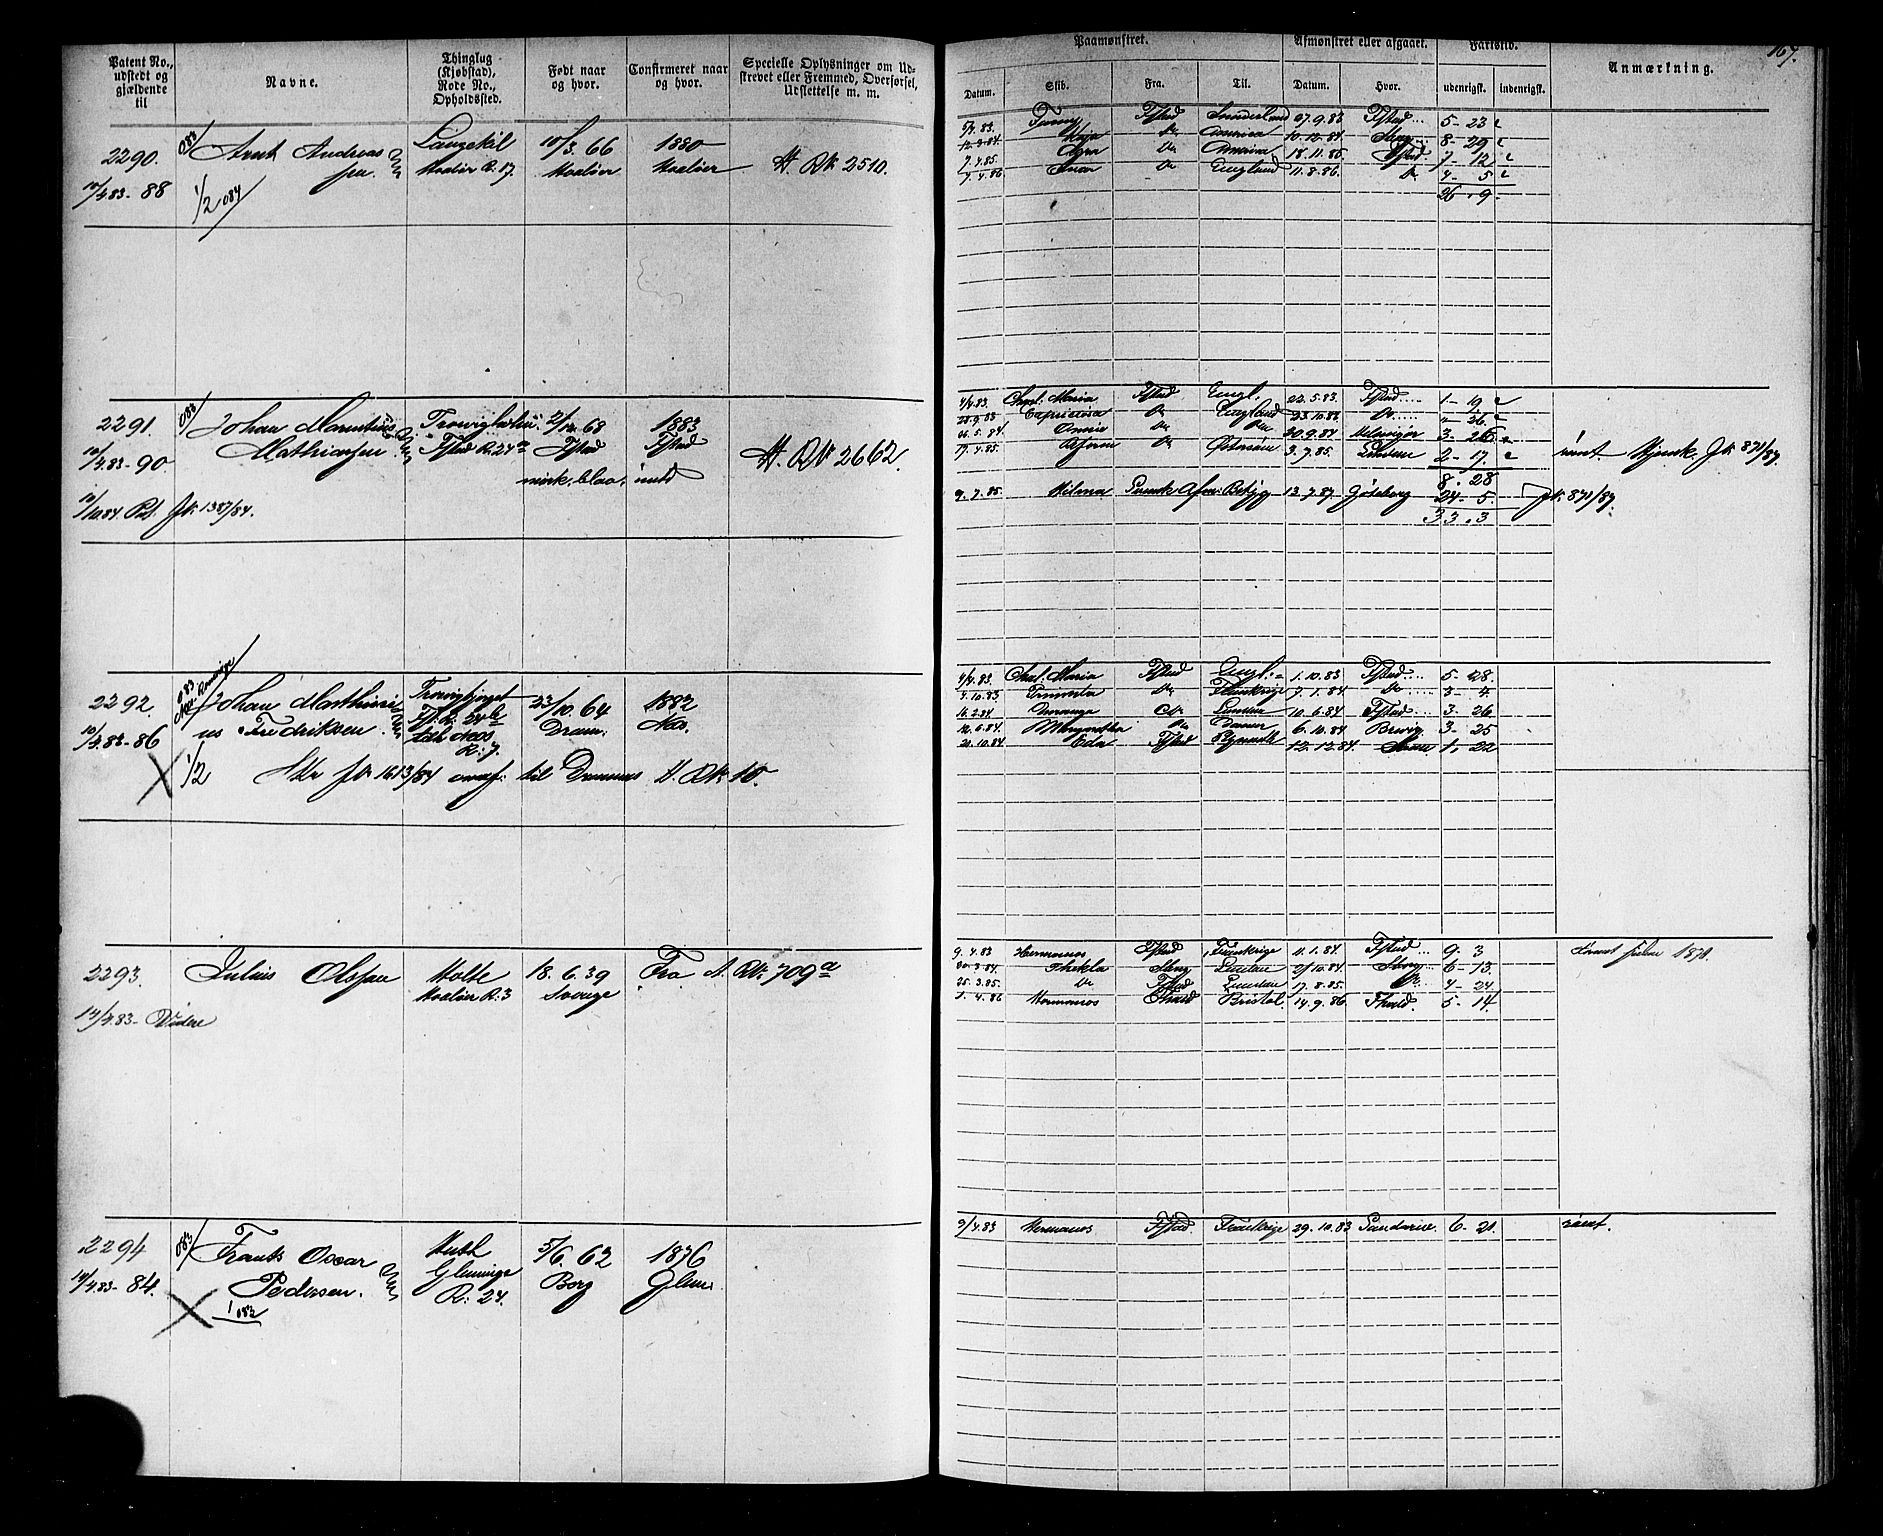 167.
Patent No., udstedt og gjældende til
Navne.
Thinglag (Kjøbstad), Rode No., Opholdssted.
Født naar og hvor.
Confirmeret naar og hvor.
Specielle Oplysninger om Udskrevet eller Fremmed, Overførsel, Udslettelse m. m.
Paamønstret.
Afmønstret eller afgaaet.
Fartstid.
Anmærkning.
Datum.
Skib.
Fra.
Til.
Datum.
Hvor.
udenrigsk.
indenrigsk.
2290.
10/4.83-88
083
Arnt Andreas
1/2 084
Langekil
Hvaløer R: 17.
10/3 66
Hvaløer
1880
Hvaløer
H. Rk 2510.
5/4.83. Fanny Fstad Sunderland 27.9.83 Fstad 5-23
12.3.84. Do America 10.12.84 8-29
7.4.85. Do America 18.11.85 Fstad 7-12
7.4.86 Do England 11.8.86. Do 4-5
26.9
2291.
10/4.83-90
083
Johan Marntius
Mathiassen
Fstad R. 24a
2/12 68
Fstad
1883
Fstad
mørk, blaa,
H. Rk 2662.
10/10 84 Pat. Jk. 1387/84.
4/4.83. Charl. Maria Fstad Engl. 22.5.83 Fstad 1-19
Capriciosa Do England 23.10.83 Do 26
26.5.84. Do 30.9.84 3-26
17.4.85. Do Østersøen 3.7.85. London 2-17
8.28
9.7.85. Hilma 13.7.87 Gøteborg 24-5. Jk. 871/87.
33.3
rømt Jk. 871/87
2292.
10/4.83-86
083
Johan Marthini
us Fredriksen
1/2
R: 7.
23/10 64
Dram.
1882
Næs.
Jk 1613/84 overf. til Drammen H. Rk 10.
4/4.83. Charl. Maria Fstad Engl. 1.10.83 Fstad 5-28.
4.10.83 Do Frankrige 7.1.84 Do 3-4.
16.2.84 Do London 10.6.84 Fstad 3-26
12.6.84 Margaretha Do 6.10.84 Brevig 3-25
21.10.84 Eda Fstad Plymouth 12.12.84. 1. 22
2293.
14/4.83- Videre
Julius Olssen
Holte
Hvaløer R: 3
18.6.39
Sverige
Fra A. Rk. 709a
9.4.83 Hermanos Fstad Frankrige 11.1.84. Fstad 9.3
30.3.84. Thekla Sarp London 2/10.84 Sarp 6-13.
25.3.85. Do Fstad London 17.8.85. Do 4-24.
1.4.86 Hermanos Fhald Bristol 14.9.86 Fhald. 5-14.
1870.
2294
14/4.83-84.
083
Frants Oscar
Pedersen.
1/083
Glemminge
R: 24.
5/6. 62
Borg
1876
Glem.
9/4.83 Hermanos Fstad Frankrige 29.10.83 6-21.
rømt.